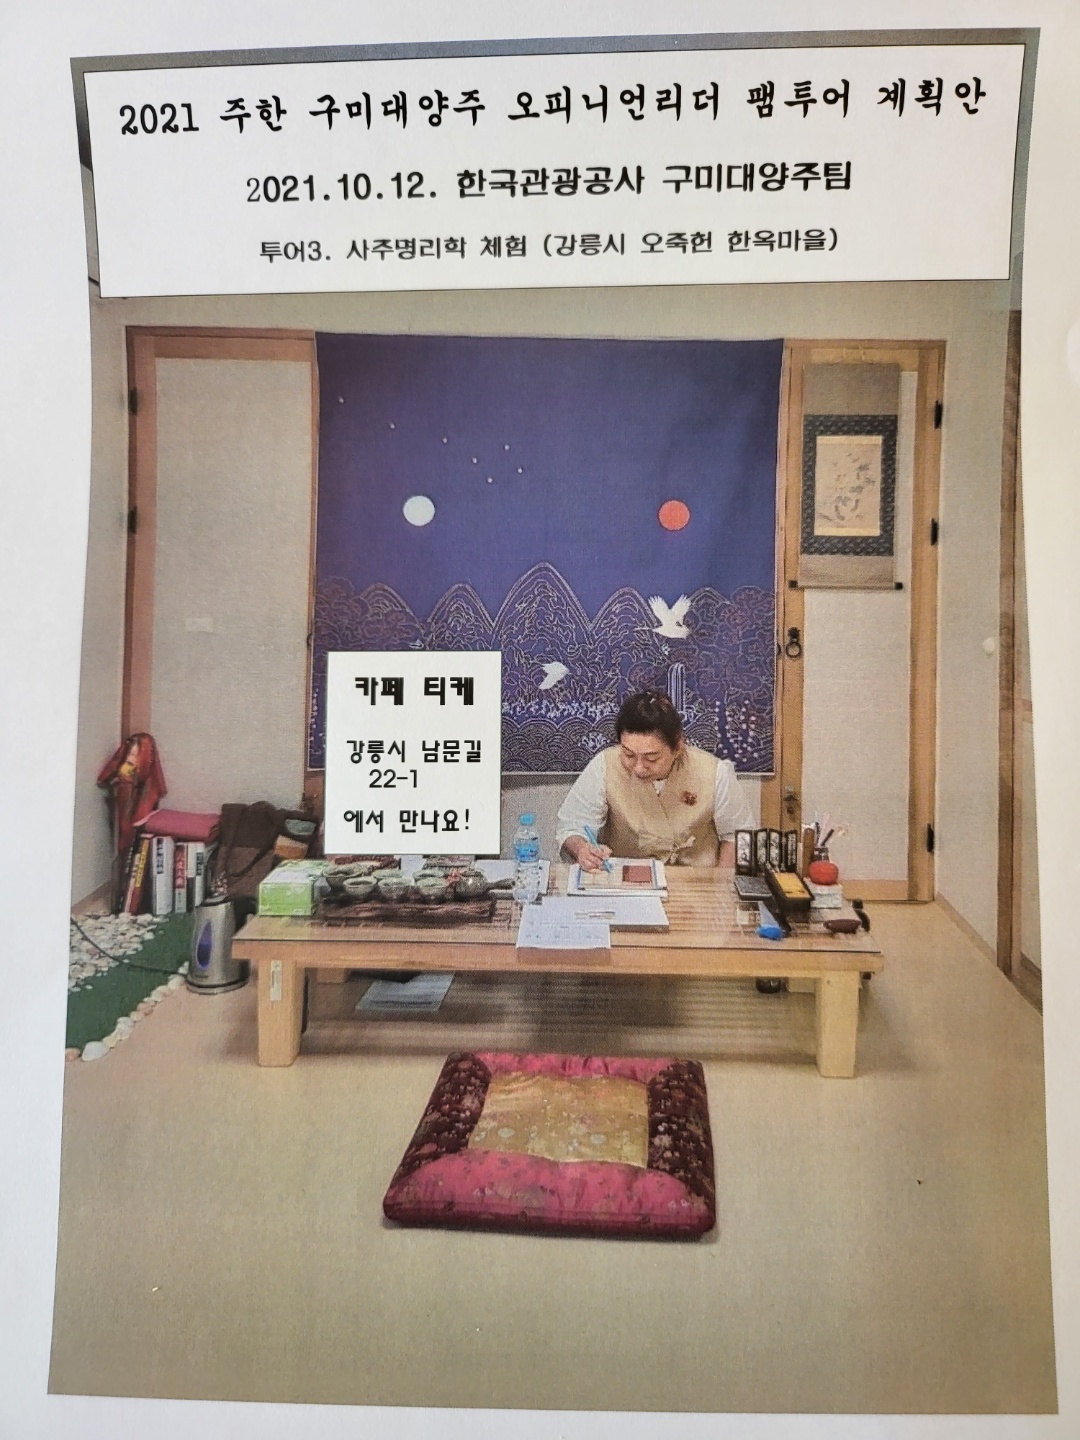 2021 주한 구미대양주 오피니언리더 팸투어 계획안
2021.10.12. 한국관광공사 구미대양주팀
투어3. 사주명리학 체험 (강릉시 오죽헌 한옥마을)
카페 티케
강릉시 남문길
22-1
에서 만나요!